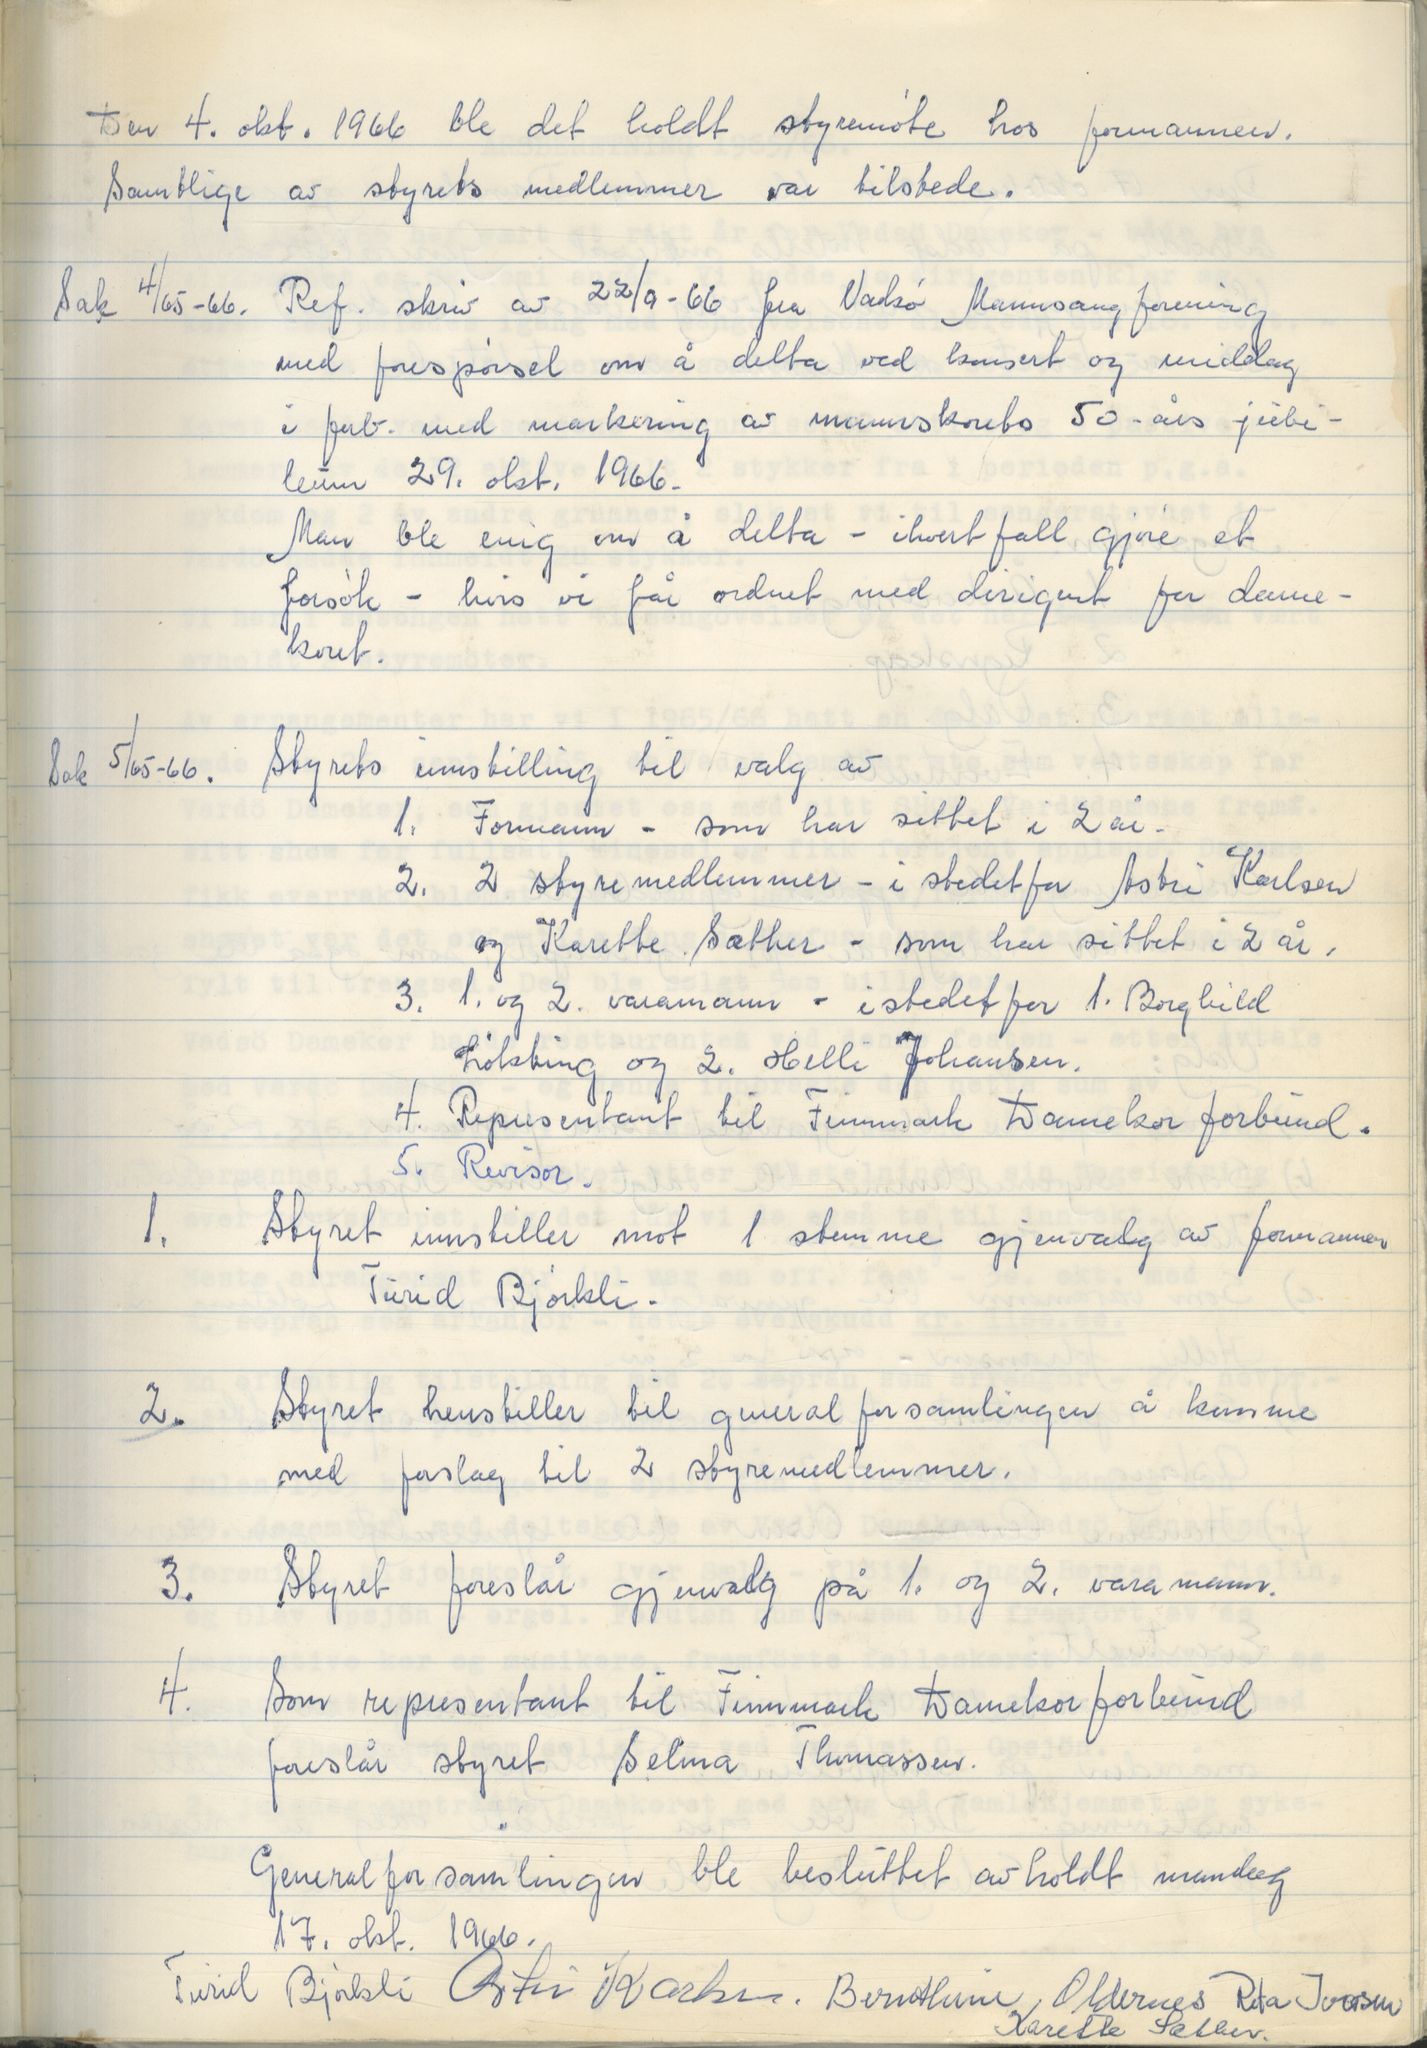 Den 4. okt. 1966 ble det holdt styremöte hos formannen.
Samtlige av styrets medlemmer var tilstede.
Sak 4/65-66. Ref. skriv av 22/9-66 fra Vadsö Mannsangforening
med forespörsel om å delta ved konsert og middag
i forb. med markering av mannskorets 50-års jubi-
leum 29. okt. 1966.
Man ble enig om å delta - ihvertfall gjöre et
forsök - hvis vi får ordnet med dirigent for dame-
koret.
Sak 5/65-66. Styrets innstilling til valg av
1. Formann - som har sittet i 2 år.
2. 2 styremedlemmer - i stedetfor Astri Karlsen
og Karette Sæther - som har sittet i 2 år.
3. 1. og 2. varamann - istedetfor 1. Borghild
Lökting og 2. Helli Johansen.
4. Representant til Finnmark Damekorforbund.
5. Revisor.
1. Styret innstiller mot 1 stemme gjenvalg av formannen
Turid Björkli.
2. Styret henstiller til generalforsamlingen å komme
med forslag til 2 styremedlemmer.
3. Styret foreslår gjenvalg på 1. og 2. varamann.
4. Som representant til Finnmark Damekorforbund
foreslår styret Selma Thomassen.
Generalforsamlingen ble besluttet avholdt mandag
17. okt. 1966.
Turid Björkli Astri Karlsen. Oldernes Rita Iversen
Karette Sæther.